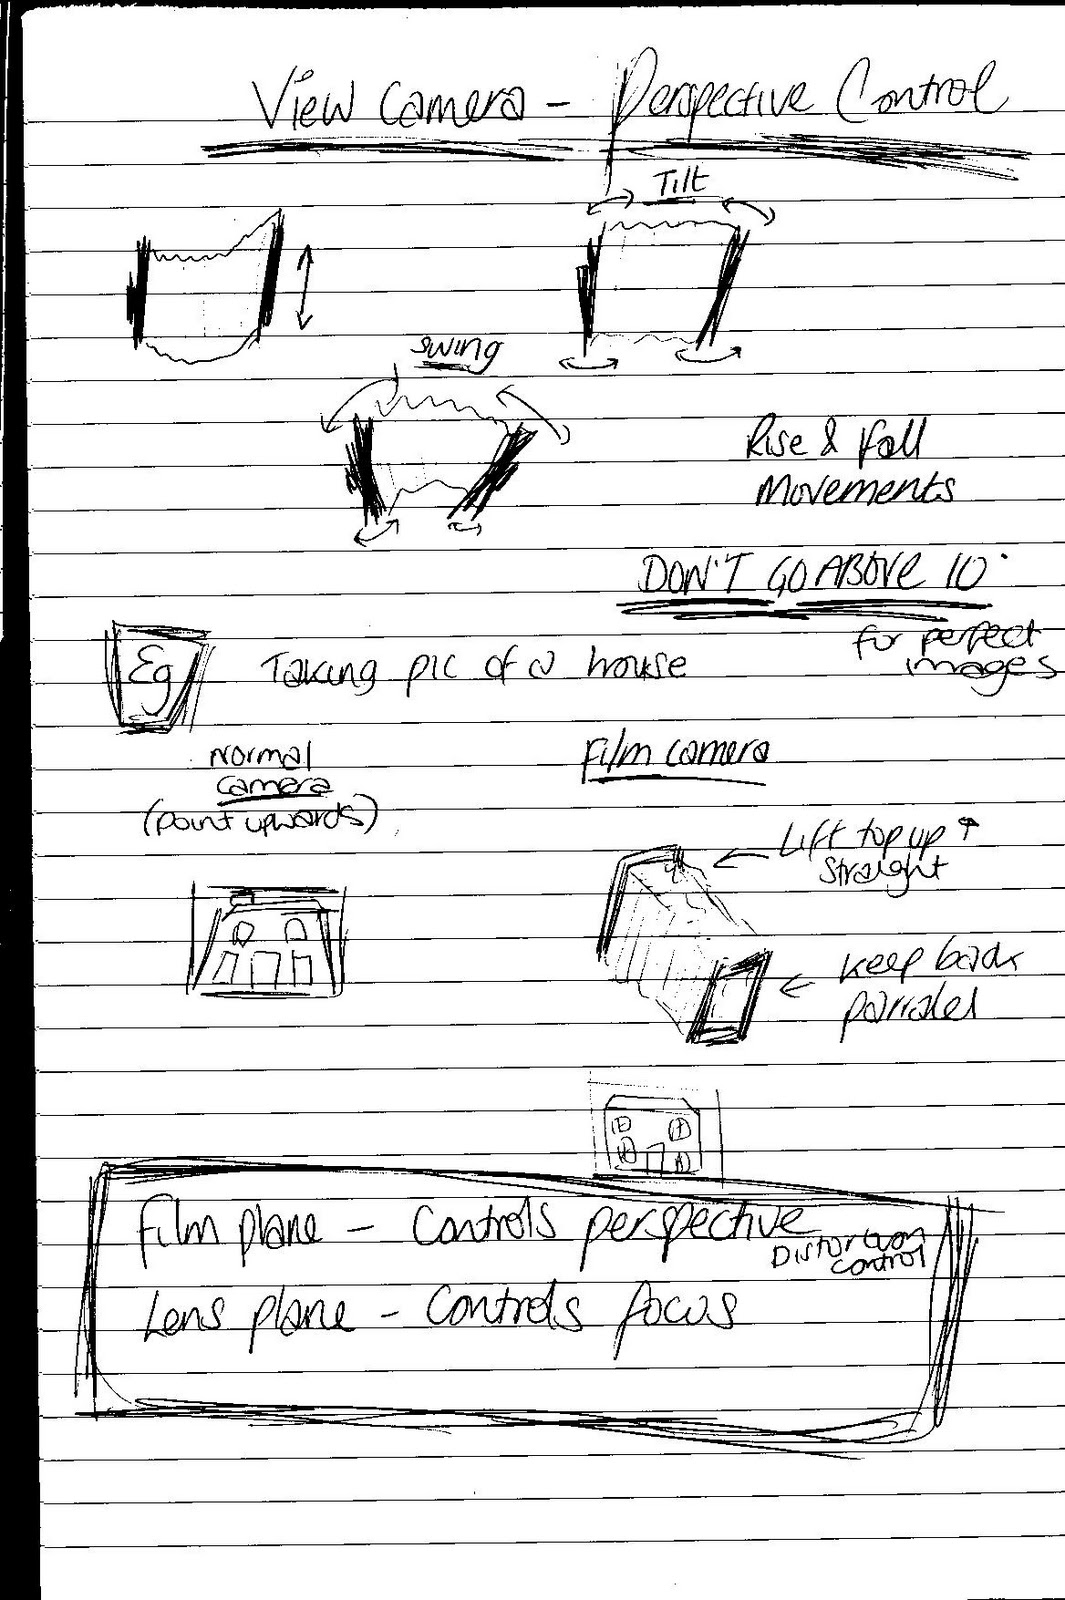 View Camera - Perspective Control
Tilt
swing
Rise & fall
Movements
DON'T GO ABOVE 10°
for perfect
images
Eg
Taking pic of a house
Normal
camera
(point upwards)
Film camera
Lift top up ↑
straight
Keep back
parralel
Film plane - Controls perspective
Distortion
control
Lens plane - Controls focus